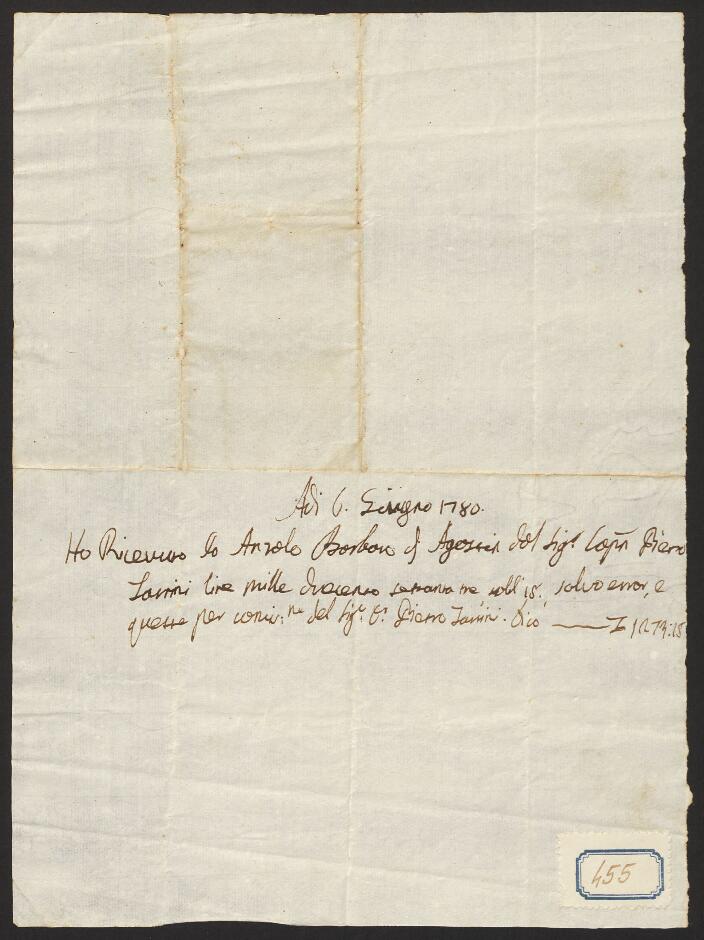 Adi 6. Giugno 1780.
Ho Ricevuto Io Anzolo Barbaro di Agostin dal Sig.r Cap.n Pietro
lire mille duecento settanta tre soldi 15, salvo error, e
queste per del Sig.r Pietro Dico —— L 1273:15
455